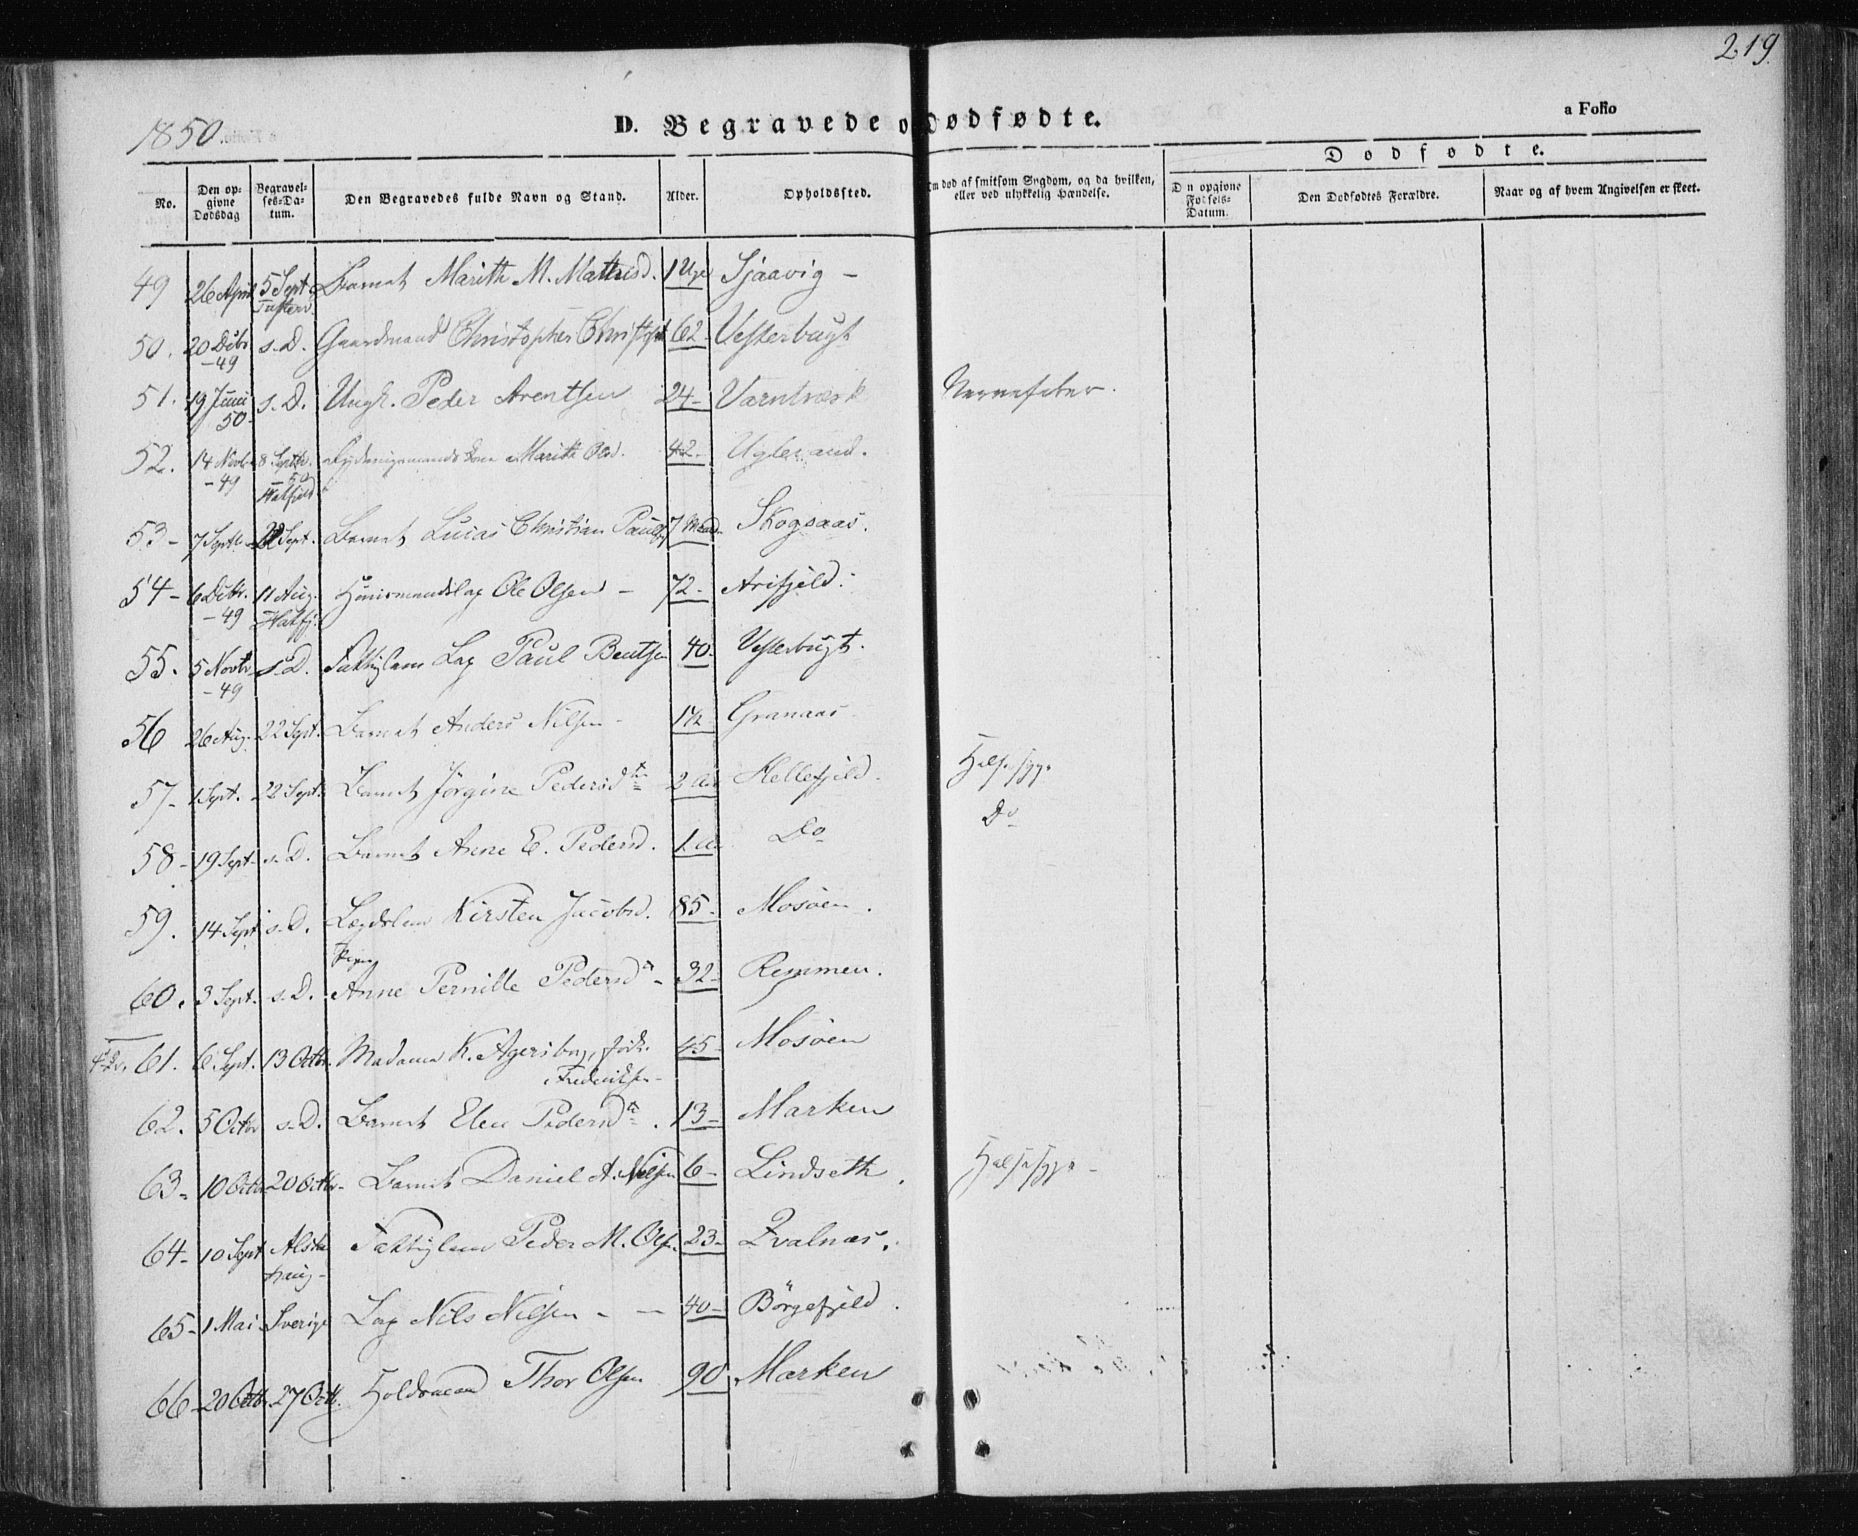 219.
1850.
D. Begravede o Dødfødte.
a Folio
Dødfødte.
No.
Den opgivne Dødsdag
Begravelses-Datum.
Den Begravedes fulde Navn og Stand.
Alder.
Opholdssted.
Om død af smitsom Sygdom, og da hvilken, eller ved ulykkelig Hændelse.
Den opgivne Fødsels-Datum.
Den Dødfødtes Forældre.
Naar og af hvem Angivelsen er skeet.
49 26 April 5 Sept Barnet Marith M. Mathisd. 1 Uge Sjaavig -
50. 20 Dcbr -49 s. D. Gaardmand Christopher 62 Vesterbugt
51. 19 Juni 50 s. D. Ungk. Peder Arentsen 24- Varntræsk Nervefeber.
52. 14 Novbr -49 8 Septbr. -50 Hatfjeld Marith Olsd. 42-
53- 7 Septbr 22 Sept. Barnet Lucas Christian 7 Skogsaas.
54- 6 Dcbr. -49 11 Aug. Hatfj. Huusmandslap Ole Olsen - 72- Arefjeld.
55. 5 Novbr -49 s. D. Fattiglem Lap Paul Bentsen 40 Vesterbugt.
56 26 Aug. 22 Sept. Barnet Anders Nilsen - 1½ Granaas
57- 1 Sept. 22 Sept. Barnet Jørgine Pedersdtr 2 Aar Hellefjeld. Halssyge
58- 19 Sept- s. D. Barnet Anne E. Pedersd. 1 Aar Do Do
59. 14 Sept s. D. Lægdslem Kirsten Jacobsd. 85- Mosøen.
60. 3 Sept. s. D. Pigen Anne Pernille Pedersdtr - 32- Remmen.
61. 6 Sept. 13 Octbr. Madame K. Agersborg, født Frederiksen- 45- Mosøen
62. 5 Octbr s. D. Barnet Elen Pedersdtr. 13- Marken
63- 10 Octbr 20 Octbr- Barnet Daniel A. Nilsen 6- Lindseth. Halssyge -
64- 10 Sept Alstahaug- Fattiglem Peder M. Ols. 23- Kvalnæs.
65- 1 Mai Sverige Lap Nils Nilsen - - 40- Børgefjeld.
66- 20 Octbr. 27 Octb. Holdsmand Thor Olsen 90 Marken